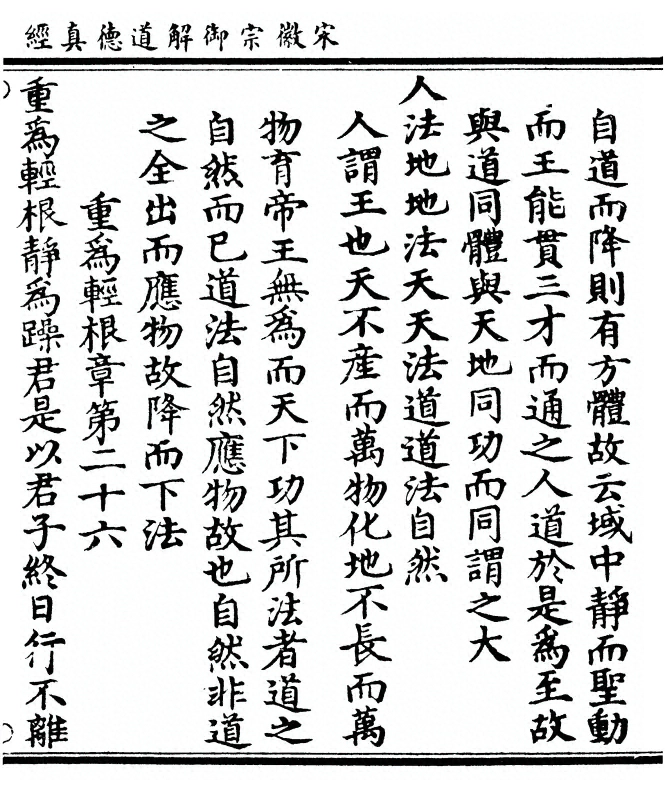 宋徽宗御解道德真經
自道而降則有方體故云域中靜而聖動
而王能貫三才而通之人道於是爲至故
與道同體與天地同功而同謂之大
人法地地法天天法道道法自然
人謂王也天不産而萬物化地不長而萬
物育帝王無爲而天下功其所法者道之
自然而已道法自然應物故也自然非道
之全出而應物故降而下法
重爲輕根章第二十六
重爲輕根靜爲躁君是以君子終日行不離